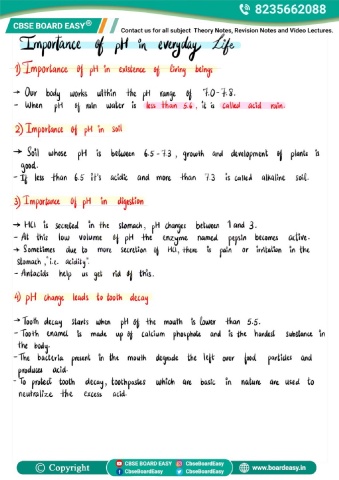 8235662088
CBSE BOARD EASY®
Contact us for all subject Theory Notes, Revision Notes and Video Lectures.
Importance of pH in everyday Life
1) Importance of pH in existence of living beings
→ Our body works within the pH range of 7.0-7.8.
- When pH of rain water is less than 5.6, it is called acid rain.
2) Importance of pH in soil
→ Soil whose pH is between 6.5-7.3, growth and development of plants is
good.
- If less than 6.5 it's acidic and more than 7.3 is called alkaline soil.
3) Importance of pH in digestion
→ HCl is secreted in the stomach, pH changes between 1 and 3.
- At this low volume of pH the enzyme named pepsin becomes active.
→ Sometimes due to more secretion of HCl, there is pain or irritation in the
stomach, "i.e. acidity".
- Antacids help us get rid of this.
4) pH change leads to tooth decay
→ Tooth decay starts when pH of the mouth is lower than 5.5.
- Tooth enamel is made up of calcium phosphate and is the hardest substance in
the body.
- The bacteria present in the mouth degrade the left over food particles and
produces acid.
- To protect tooth decay, toothpastes which are basic in nature are used to
neutralize the excess acid.
© Copyright
CBSE BOARD EASY
CbseBoardEasy
CbseBoardEasy
CbseBoardEasy
www.boardeasy.in